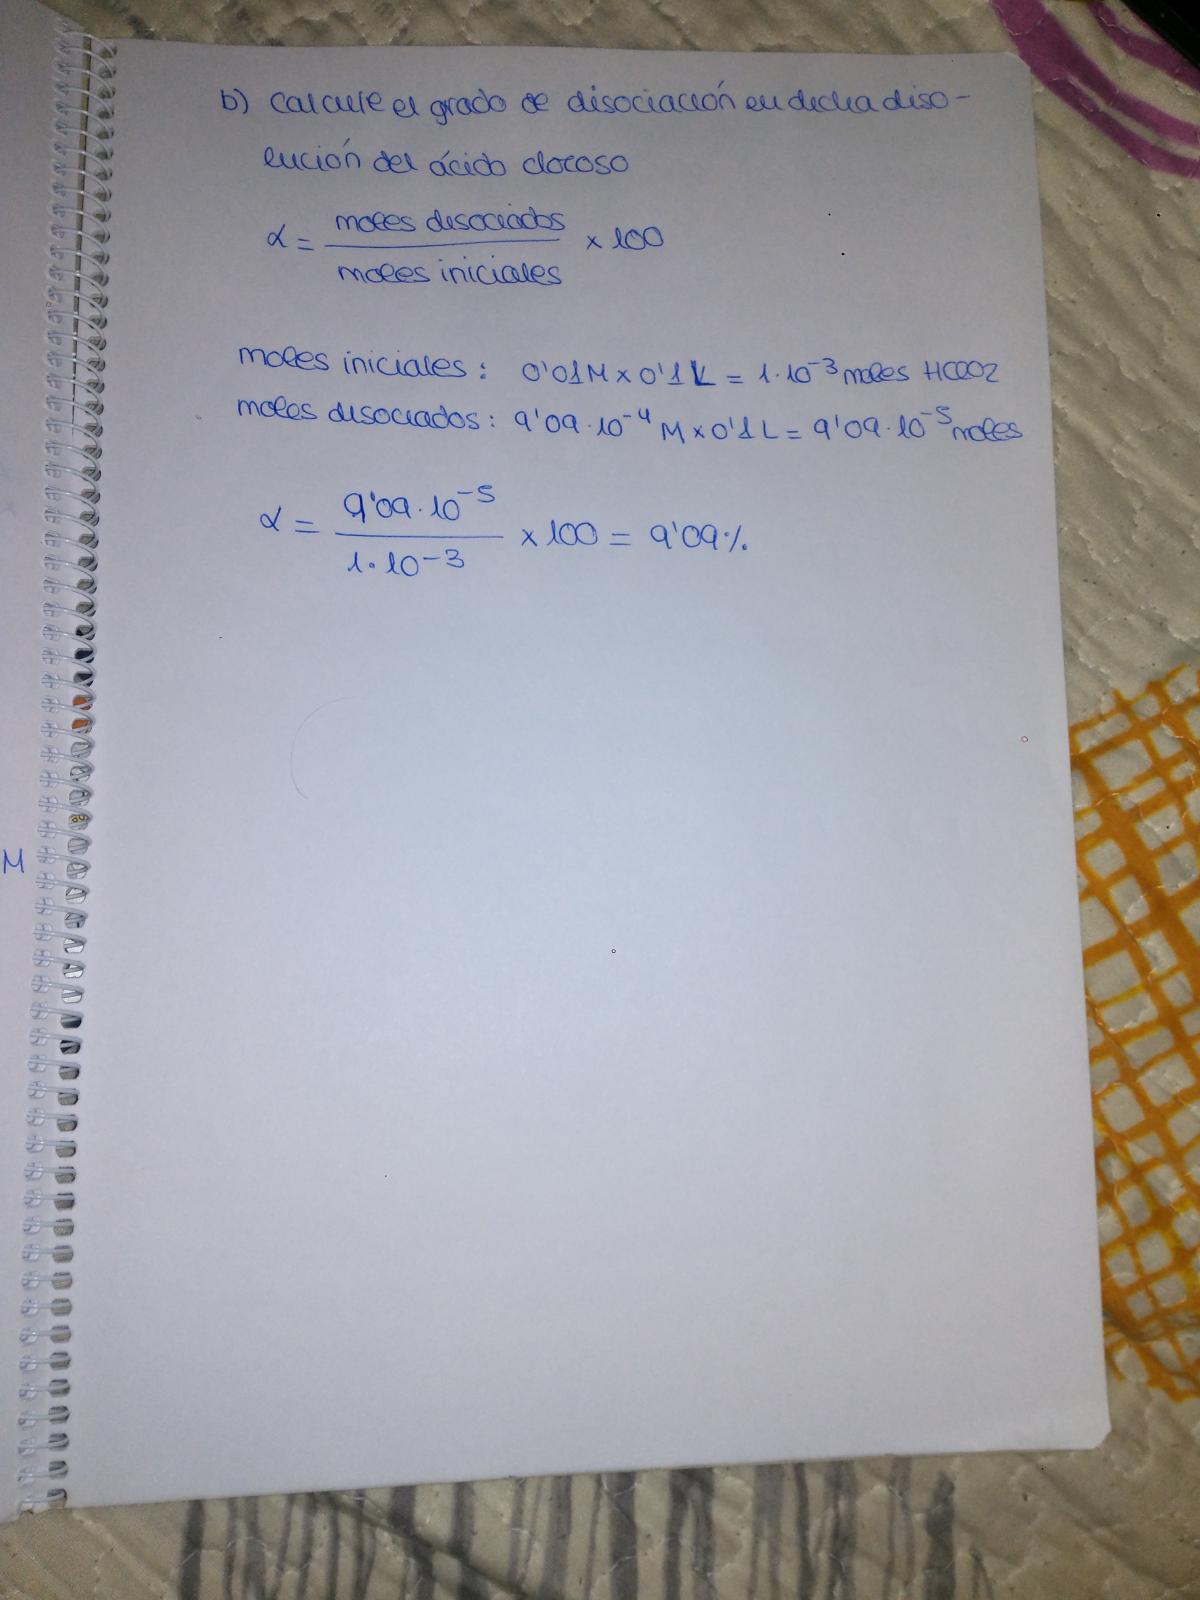 b) Calcule el grado de disociación en dicha diso-
lución del ácido cloroso
α = moles disociados / moles iniciales × 100
moles iniciales: 0'01M × 0'1L = 1·10⁻³ moles HClO2
moles disociados: 9'09·10⁻⁴ M × 0'1 L = 9'09·10⁻⁵ moles
α = 9'09·10⁻⁵ / 1·10⁻³ × 100 = 9'09%
M